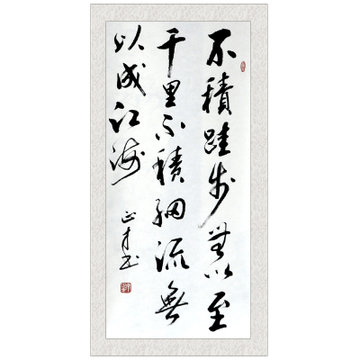 不積跬步無以至
千里不積細流無
以成江海